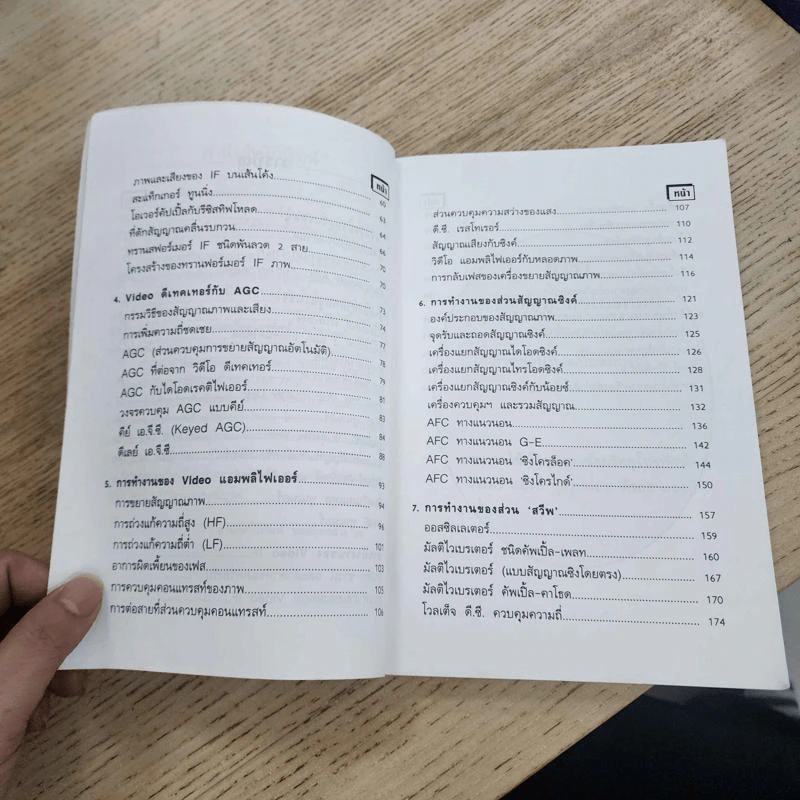 หน้า
ภาพและเสียงของ IF บนเส้นโค้ง.......... 60
สะแท็กเกอร์ ทูนนิ่ง.......... 63
โอเวอร์คัปเปิ้ลกับรีซิสทีฟโหลด.......... 64
ที่ดักสัญญาณคลื่นรบกวน.......... 66
ทรานสฟอร์เมอร์ IF ชนิดพันลวด 2 สาย.......... 70
โครงสร้างของทรานฟอร์เมอร์ IF ภาพ.......... 70
4. Video ดีเทคเทอร์กับ AGC.......... 73
กรรมวิธีของสัญญาณภาพและเสียง.......... 74
การเพิ่มความถี่ชดเชย.......... 77
AGC (ส่วนควบคุมการขยายสัญญาณอัตโนมัติ).......... 78
AGC ที่ต่อจาก วิดีโอ ดีเทคเทอร์.......... 79
AGC กับไดโอดเรคติไฟเออร์.......... 81
วงจรควบคุม AGC แบบคีย์.......... 83
คีย์ เอ.จี.ซี. (Keyed AGC).......... 84
ดีเลย์ เอ.จี.ซี.......... 88
5. การทำงานของ Video แอมพลิไฟเออร์.......... 93
การขยายสัญญาณภาพ.......... 94
การถ่วงแก้ความถี่สูง (HF).......... 96
การถ่วงแก้ความถี่ต่ำ (LF).......... 101
อาการผิดเพี้ยนของเฟส.......... 103
การควบคุมคอนแทรสท์ของภาพ.......... 105
การต่อสายที่ส่วนควบคุมคอนแทรสท์.......... 106
หน้า
ส่วนควบคุมความสว่างของแสง.......... 107
ดี.ซี. เรสโทเรอร์.......... 110
สัญญาณเสียงกับซิงค์.......... 112
วิดีโอ แอมพลิไฟเออร์กับหลอดภาพ.......... 114
การกลับเฟสของเครื่องขยายสัญญาณภาพ.......... 116
6. การทำงานของส่วนสัญญาณซิงค์.......... 121
องค์ประกอบของสัญญาณภาพ.......... 123
จุดรับและถอดสัญญาณซิงค์.......... 125
เครื่องแยกสัญญาณไดโอดซิงค์.......... 126
เครื่องแยกสัญญาณไทรโอดซิงค์.......... 128
เครื่องแยกสัญญาณซิงค์กับน้อยซ์.......... 131
เครื่องควบคุมฯ และรวมสัญญาณ.......... 132
AFC ทางแนวนอน.......... 136
AFC ทางแนวนอน G-E.......... 142
AFC ทางแนวนอน 'ซิงโครล็อค'.......... 144
AFC ทางแนวนอน 'ซิงโครไกด์'.......... 150
7. การทำงานของส่วน 'สวีพ'.......... 157
ออสซิลเลเตอร์.......... 159
มัลติไวเบรเตอร์ ชนิดคัพเปิ้ล-เพลท.......... 160
มัลติไวเบรเตอร์ (แบบสัญญาณซิงโดยตรง).......... 167
มัลติไวเบรเตอร์ คัพเปิ้ล-คาโธด.......... 170
โวลเต็จ ดี.ซี. ควบคุมความถี่.......... 174